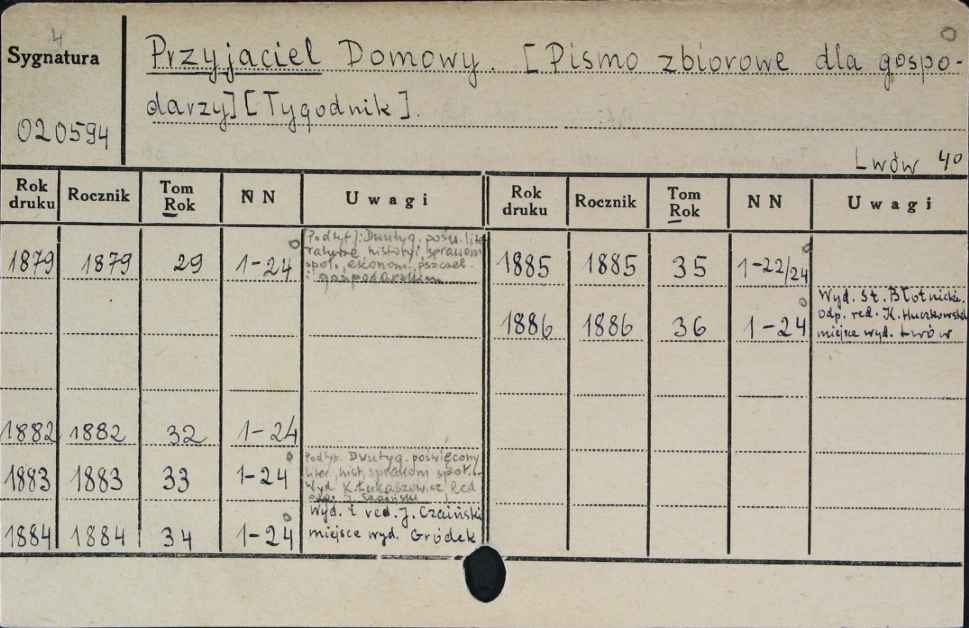 4
Sygnatura
020594
Przyjaciel Domowy. [Pismo zbiorowe dla gospo-
darzy] [Tygodnik].
Lwów 4°
Rok druku Rocznik Tom Rok NN Uwagi Rok druku Rocznik Tom Rok NN Uwagi
1879 1879 29 1-24
Podtyt: Dwutyg. pośw. lite
raturze, historyi, sprawom
społ., ekonom. pszczel.
i gospodarskim
1882 1882 32 1-24
1883 1883 33 1-24
Podtyt. Dwutyg. poświęcony
liter, hist, sprawom społ.
Wyd K. Łukaszewicz, Red
odp. J. Czaiński
1884 1884 34 1-24
Wyd. i red. J. Czaiński
miejsce wyd. Gródek
1885 1885 35 1-22/24
1886 1886 36 1-24
Wyd. St. Błotnicki.
odp. red. K.
miejsce wyd. Lwów